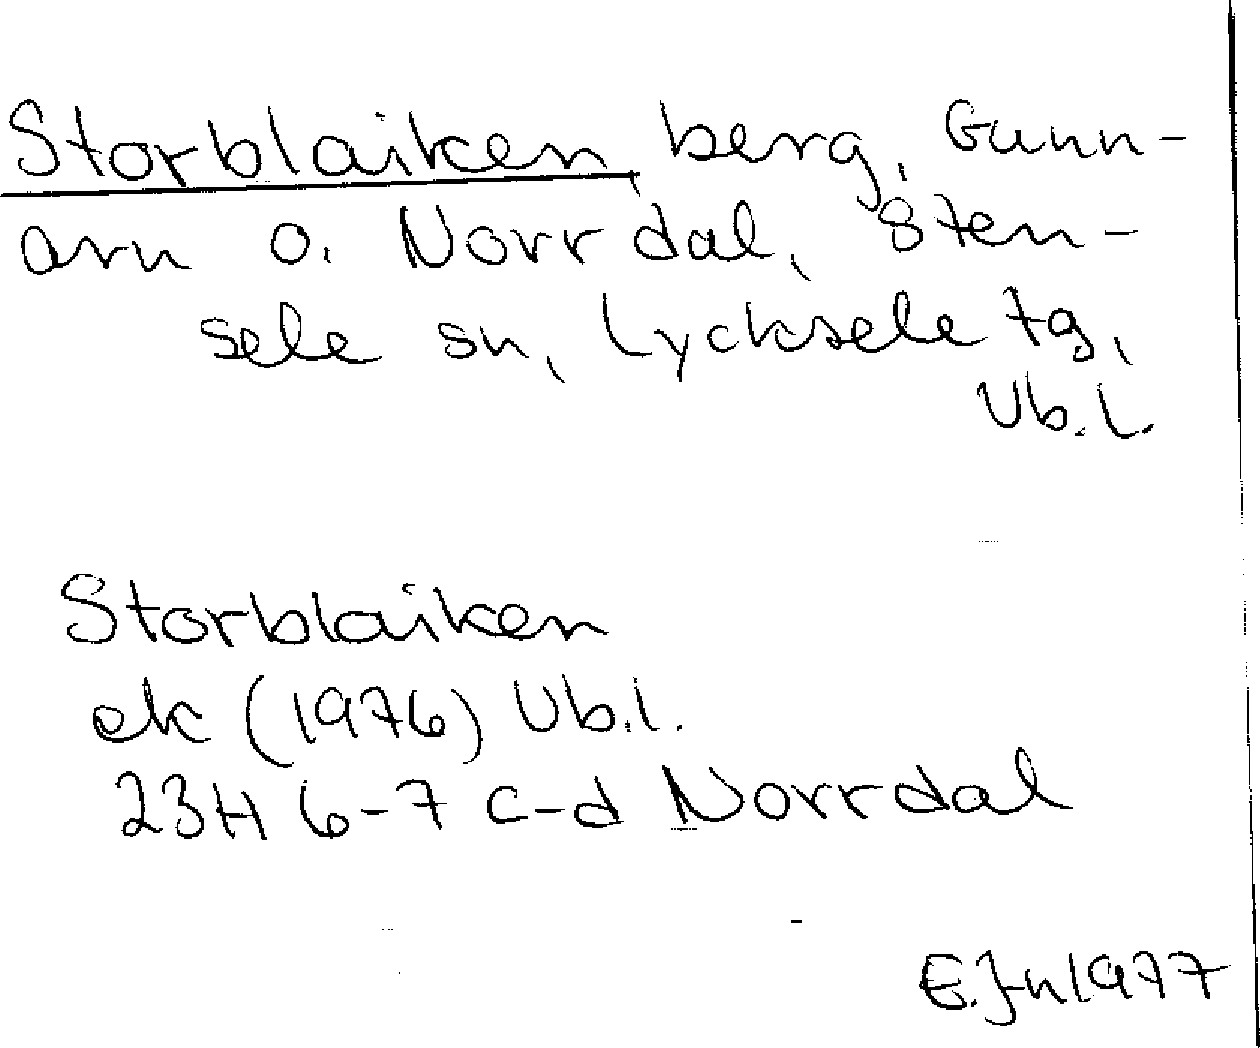 Storblaiken, berg, Gunn-
arn o. Norrdal, Sten-
sele sn, Lycksele tg,
Vb.l.
Storblaiken
ek (1976) Vb.l.
23H 6-7 c-d Norrdal
E.Jn 1977